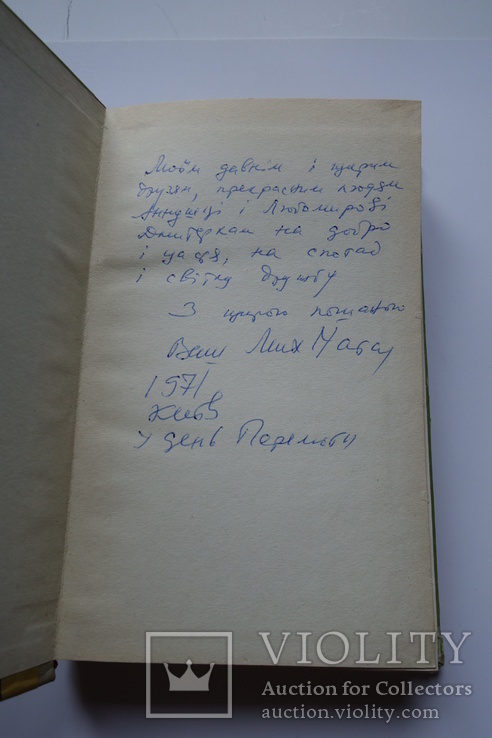 Моїм давнім і щирим
друзям, прекрасним людям
Аннушці і Любомирові
Дмитеркам на добро
і щастя, на спогад
і світлу дружбу
З щирою пошаною
Ваш Мих Чабан
1971
Київ
У день Перемоги
VIOLITY
Auction for Collectors
auction.violity.com